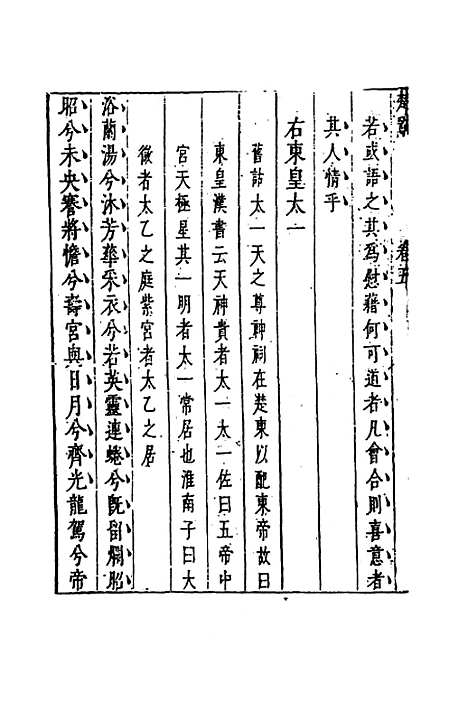 卷五
若或語之其為慰藉何可道者凡會合則喜意者
其人情乎
右東皇太一
舊詁太一天之尊神祠在楚東以配東帝故曰
東皇漢書云天神貴者太一太一佐曰五帝中
宮天極星其一明者太一常居也淮南子曰太
微者太乙之庭紫宮者太乙之居
浴蘭湯兮沐芳華采衣兮若英靈連蜷兮既留爛昭
昭兮未央蹇將憺兮壽宮與日月兮齊光龍駕兮帝